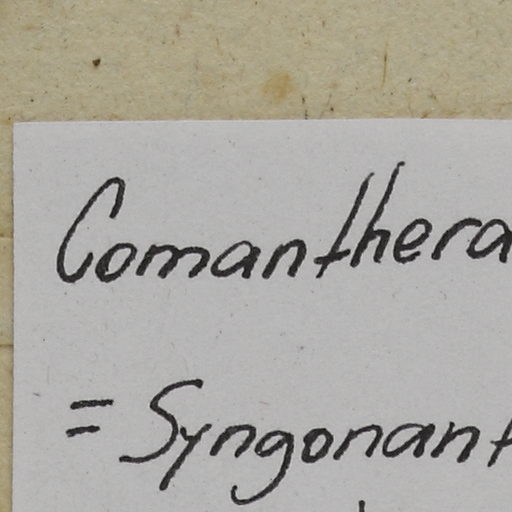 Comanthera
= Syngonant